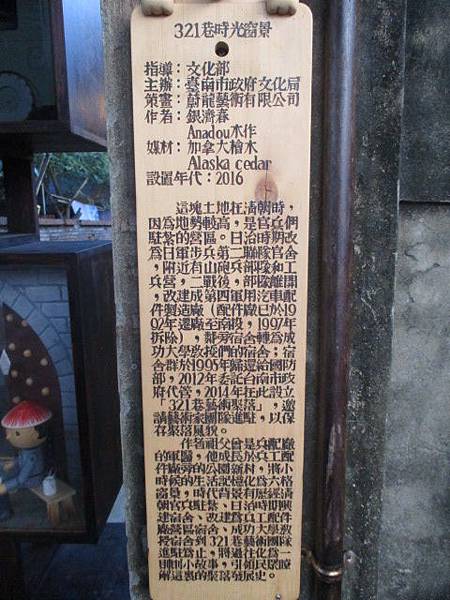 321巷時光窗景
指導：文化部
主辦：臺南市政府文化局
策畫：蔚龍藝術有限公司
作者：銀濟春
Anadou木作
媒材：加拿大檜木
Alaska cedar
設置年代：2016
這塊土地在清朝時，
因為地勢較高，是官兵們
駐紮的營區。日治時期改
為日軍步兵第二聯隊官舍
，附近有山砲兵部隊和工
兵營，二戰後，部隊離開
，改建成第四軍用汽車配
件製造廠（配件廠已於19
92年遷廠至南投，1997年
拆除），鄰旁宿舍轉為成
功大學教授們的宿舍；宿
舍群於1995年歸還給國防
部，2012年委託台南市政
府代管，2014年在此設立
「321巷藝術聚落」，邀
請藝術家團隊進駐，以保
存聚落風貌。
作者祖父曾是兵配廠
的軍醫，他成長於兵工配
件廠旁的公園新村，將小
時候的生活記憶化為六格
窗景，時代背景有歷經清
朝官兵駐紮、日治時期興
建宿舍、改建為兵工配件
廠營區宿舍、成功大學教
授宿舍到321巷藝術團隊
進駐為止，將過往化為一
則則小故事，引領民眾瞭
解這裏的聚落發展史。